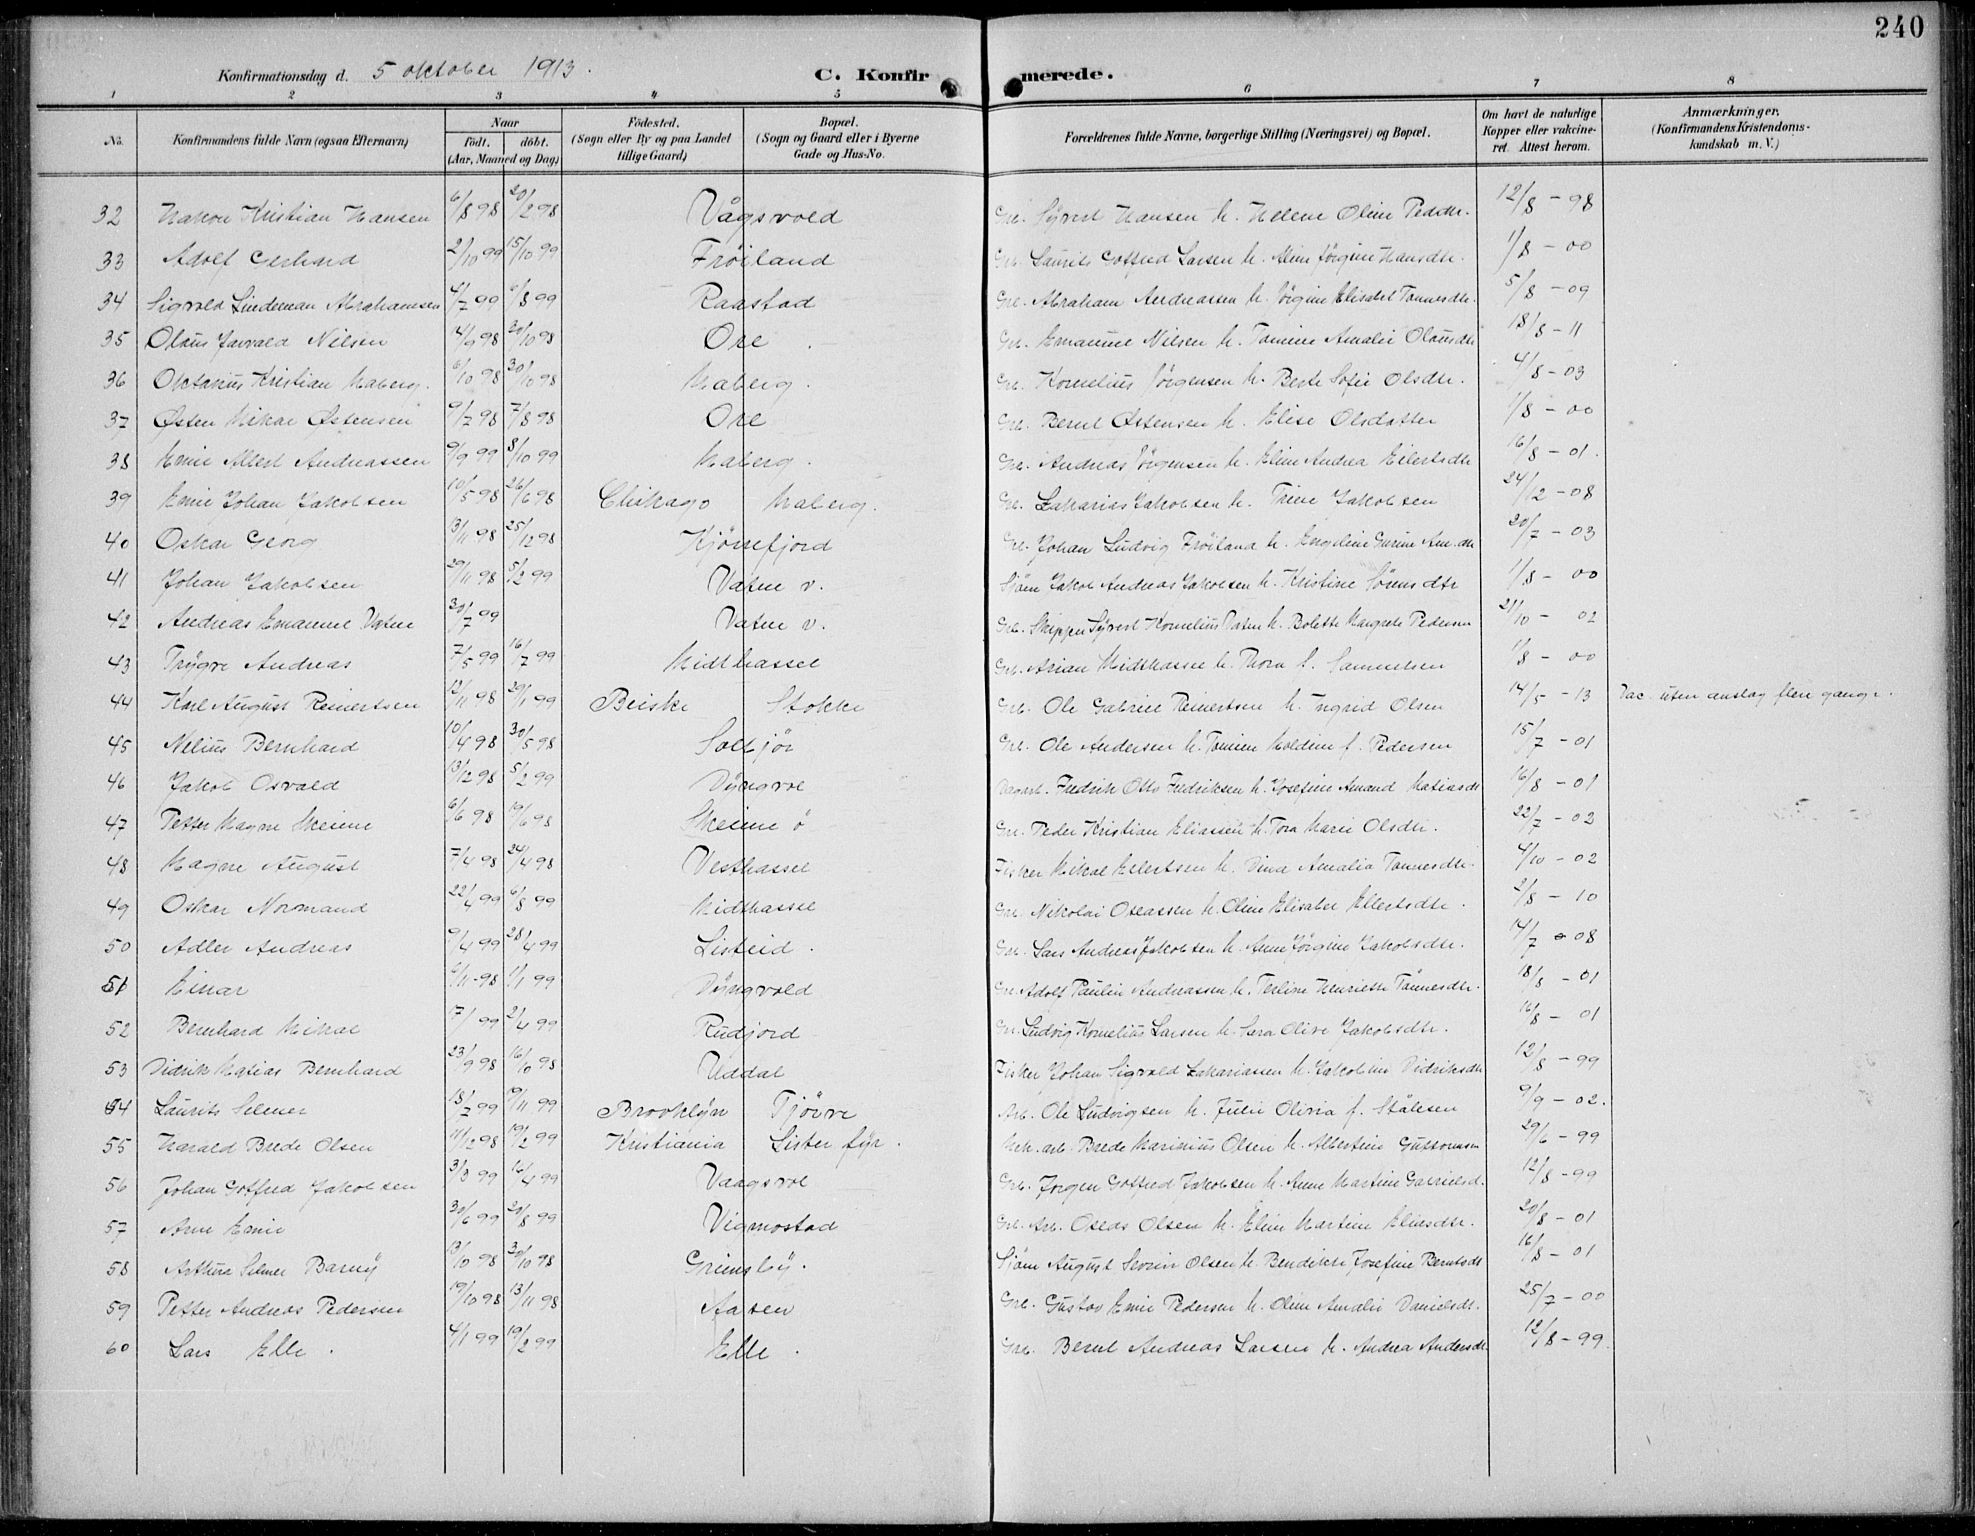 240
Konfirmationsdag d. 5 oktober 1913. C. Konfirmerede.
1 2 3 4 5 6 7 8
No. Konfirmandens fulde Navn (ogsaa Efternavn) Naar födt. döbt. (Aar, Maaned og Dag) Födested. (Sogn eller By og paa Landet tillige Gaard) Bopæl. (Sogn og Gaard eller i Byerne Gade og Hus-No. Forældrenes fulde Navne, borgerlige Stilling (Næringsvei) og Bopæl. Om havt de naturlige Kopper eller vakcineret. Attest herom. Anmærkninger. (Konfirmandens Kristendomskundskab m. V.)
32 Hakon Kristian Hansen 6/8 98 20/2 98 Vågsvold Grb. Syvert Hansen h. Helene Oline Pedsdtr. 12/8 - 98
33 Adolf Gerhard 2/10 99 15/10 99 Fröiland Grb. Laurits Gotfred Larsen h. Aline Jörgine Hansdtr. 1/8 - 00
34 Sigvald Lindeman Abrahamsen 4/7 99 6/8 99 Raastad Grb. Abraham Andreassen h. Jörgine Elisabet Tönnesdtr. 5/8 - 09
35 Olaus Nilsen 14/9 98 20/10 98 Ore Grb. Emanuel Nilsen h. Tomine Amalie Olausdtr 18/8 - 11
36 Oktavius Kristian Haberg. 6/10 98 30/10 98 Haberg. Grb. Kornelius Jörgensen h. Berte Sofie Olsdtr. 4/8 - 03
37 Østen Mikal Østensen 9/7 98 7/8 98 Ore Grb. Bernt Østensen h. Elise Olsdatter 1/8 - 00
38 Emil Albert Andreassen 9/9 99 8/10 99 Haberg. Grb. Andreas Jörgensen h. Eline Andrea Eilertsdtr 16/8 - 01.
39 Emil Johan Jakobsen 10/5 98 26/6 98 Chikago Haberg. Grb. Zakarias Jakobsen h. Trine Jakobsen 24/12 - 08
40 Oskar Georg 13/11 98 25/12 98 Kjörrefjord Grb. Johan Ludvig Fröiland h. Engeline Gurine 20/7 - 03
41 Johan Jakobsen 29/11 98 5/2 99 Vatne v. Sjöm Jakob Andreas Jakobsen h. Kristine Sörensdtr 1/8 - 00
42 Andreas Emanuel Vatne 30/7 99 Vatne v. Grb. Skipper Syvert Kornelius Vatne h. Bolette Margrete Pedersen 21/10 - 02
43 Trygve Andreas 7/5 99 16/7 99 Midthassel Grb. Arian Midthassel h. Thora f. Samuelsen 1/8 - 00
44 Karl August Reinertsen 12/11 98 29/1 99 Briske Stokke Grb. Ole Gabriel Reinertsen h. Ingrid Olsen 14/5 - 13 Vac. uten anslag flere gange.
45 Nelius Bernhard 10/4 98 30/5 98 Solbjör Grb. Ole Andersen h. Tomine f. Pedersen 15/7 - 01
46 Jakob Osvald 13/12 98 5/2 99 Dyngvol Fredrik Otto Fredriksen h. Josefine Amand Matiasdtr 16/8 - 01
47 Petter Magne Skeime 6/6 98 19/6 98 Skeime ö Grb. Peder Kristian Eliassen h. Tora Marie Olsdtr. 22/7 - 02
48 Magne August 7/4 98 24/4 98 Vesthassel Fisker Mikal Eilertsen h. Dina Amalia Tönnesdtr. 4/10 - 02
49 Oskar Normand 22/4 99 6/8 99 Midthassel Grb. Nikolai Oseassen h. Oline Elisabet Ellertsdtr. 2/8 - 10
50 Adler Andreas 9/4 99 28/4 99 Listeid. Grb. Lars Andreas Jakobsen h. Anne Jörgine Jakobsdtr. 14/7 08
51 Einar 6/11 - 98 1/1 99 Dyngvold Grb. Adolf Paulin Andreassen h. Terline Henriette Tönnesdtr. 18/8 - 01
52 Bernhard Mikal 17/1 99 2/4 99 Rudjord Grb. Ludvig Kornelius Larsen h. Sara Olive Jakobsdtr. 16/8 - 01
53 Didrik Matias Bernhard 23/9 98 16/10 98 Uddal Fisker Johan Sigvald Zakariassen h. Jakobine Didriksdtr 12/8 - 99
54 Laurits Selmer 18/7 99 19/11 99 Brooklyn Tjörve Arb. Ole Ludvigsen h. Julie Olivia f. Stålesen 9/9 - 02.
55 Harald Brede Olsen 11/12 98 19/2 99 Kristiania Lister fyr. Mek. arb. Brede Marinius Olsen h. Albertine Guttormsen 29/6 - 99
56 Johan Gotfred Jakobsen 3/3 99 16/4 99 Vaagsvol Grb. Jörgen Gotfred Jakobsen h. Anne Martine Gabrielsd. 12/8 - 99
57 Arne Emil 30/6 99 20/8 99 Vigmostad Grb. Arb. Oseas Olsen h. Eline Martine Eliasdtr. 20/8 - 01
58 Arthur Selmer Barny 13/10 98 30/10 98 Grimsby. Sjöm August Severin Olsen h. Bendikte Josefine Berntsdt 16/8 - 01
59 Petter Andreas Pedersen 19/10 98 13/11 98 Aasen Grb. Gustav Emil Pedersen h. Oline Amalie Danielsdt. 25/7 - 00
60 Lars Elle. 4/1 99 19/2 99 Elle. Grb. Bernt Andreas Larsen h. Andrea Andersdt. 12/8 - 99.